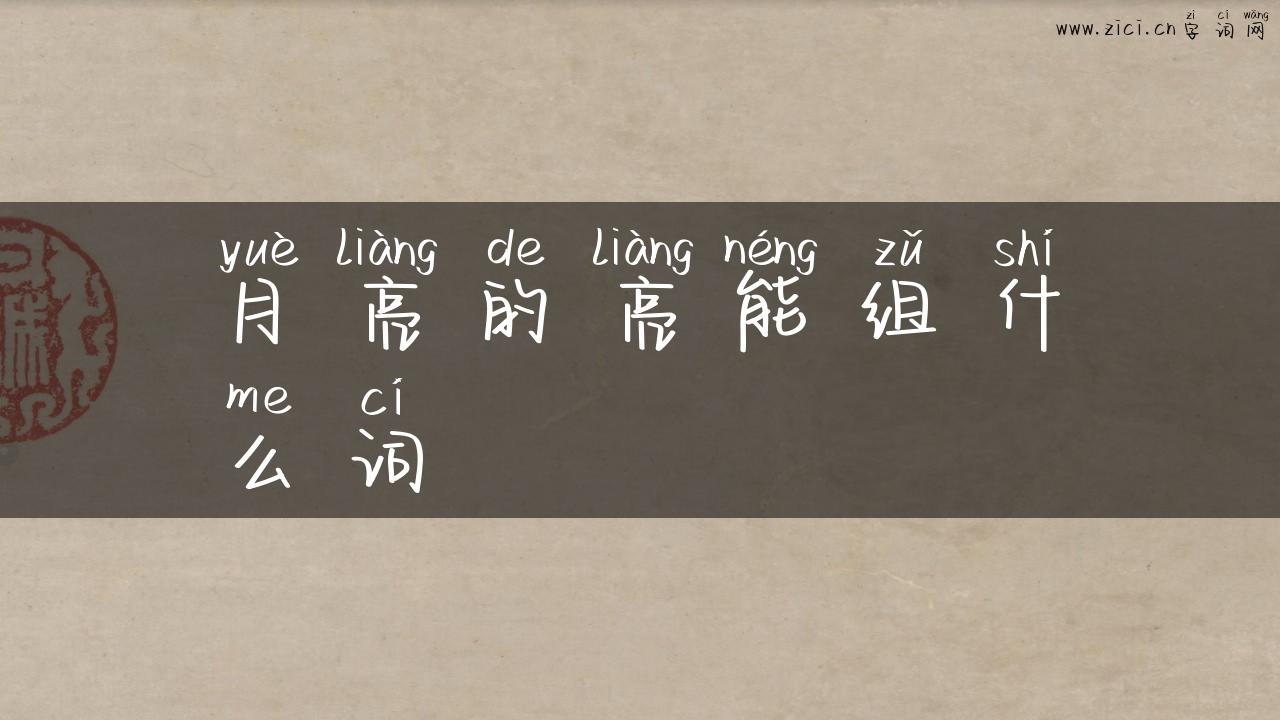 zì cí wǎng
www.zici.cn 字词网
yuè liàng de liàng néng zǔ shí
月亮的亮能组什
me cí
么词